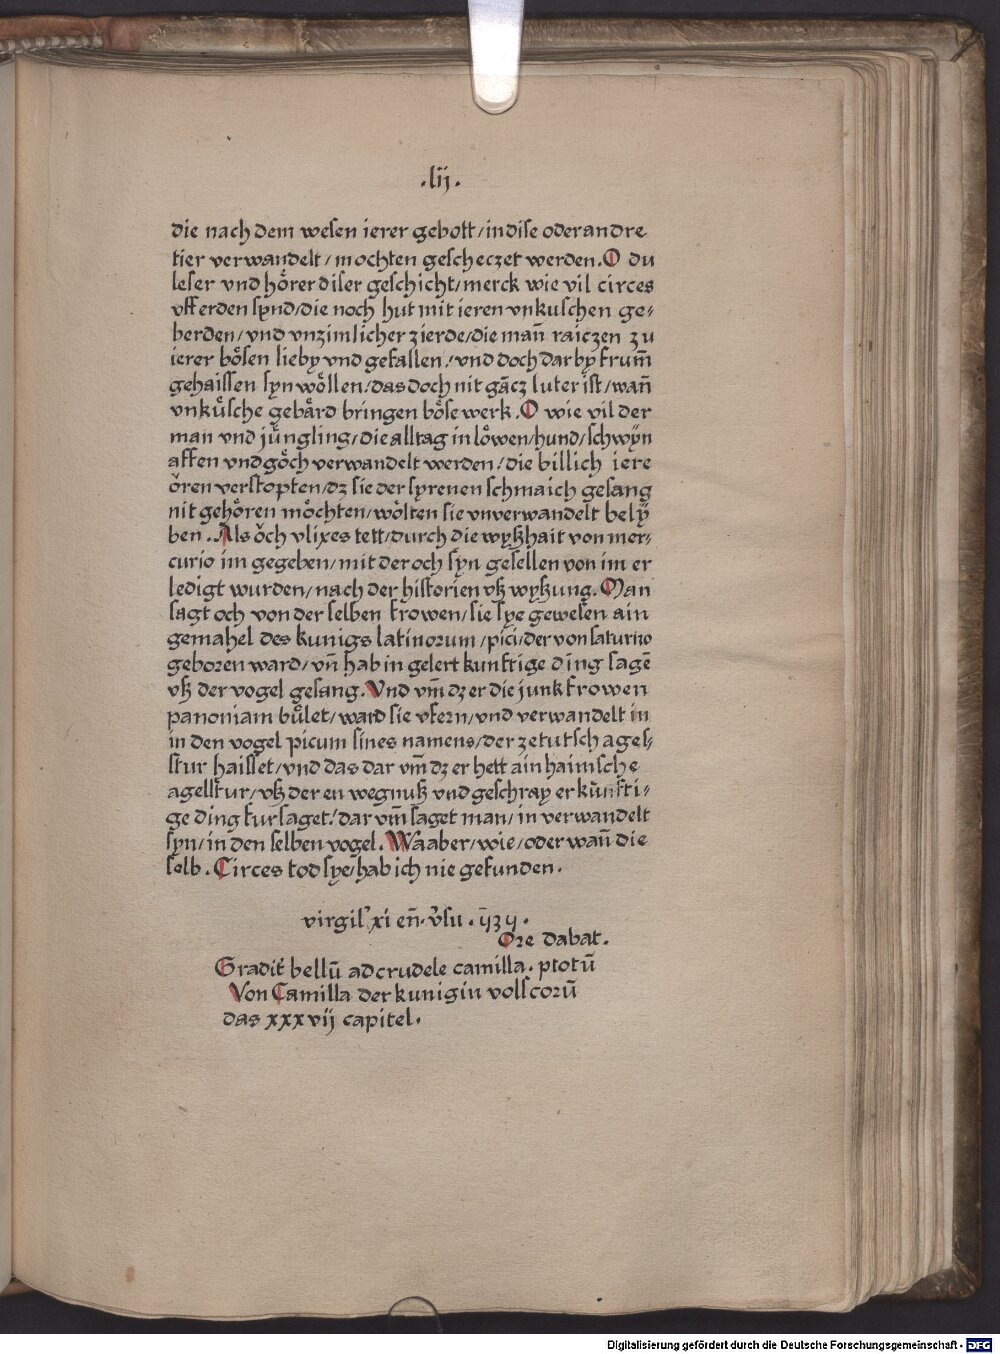 .lij.
die nach dem wesen ierer gebott/in dise oder andre
tier verwandelt/mochten gescheczet werden.O du
leser vnd hoͤrer diser geschicht/merck wie vil circes
vff erden synd/die noch hut mit ieren vnkuschen ge⸗
berden/vnd vnzimlicher zierde/die man̄ raiczen zu
ierer boͤsen lieby vnd gefallen/vnd doch dar by frum̄
gehaissen syn woͤllen/das doch nit gācz luter ist/wan̄
vnkuͤsche gebaͤrd bringen boͤse werk.O wie vil der
man vnd juͤngling/die alltag in loͤwen/hund/schwyn
affen vnd goͤch verwandelt werden/die billich iere
oͮren verstopten/dz sie der syrenen schmaich gesang
nit gehoͤren moͤchten/woͤlten sie vnverwandelt bely
ben.Als oͮch vlixes tett/durch die wyßhait von mer⸗
curio im gegeben/mit der och syn gesellen von im er
ledigt wurden/nach der historien vß wyßung.Man
sagt och von der selben frowen/sie sye gewesen ain
gemahel des kunigs latinorum/pici/der von saturno
geboren ward/vn̄ hab in gelert kunftige ding sagē
vß der vogel gesang.Vnd vm̄ dz er die junkfrowen
panoniam buͤlet/ward sie yfern/vnd verwandelt in
in den vogel picum sines namens/der ze tutsch agel⸗
stur haisset/vnd das dar vm̄ dz er hett ain haimsche
agelstur/vß der en wegnuß vnd geschray er kunfti⸗
ge ding fursaget/dar vm̄ saget man/in verwandelt
syn/in den selben vogel.Wa aber/wie/oder wan̄ die
selb.Circes tod sye/hab ich nie gefunden.
virgil' xi en̄. v̓su.
Ore dabat.
Gradit̄ bellū ad crudele camilla. ptotū
Von Camilla der kunigin volscorū
das xxxvij capitel.
Digitalisierung gefördert durch die Deutsche Forschungsgemeinschaft - DFG